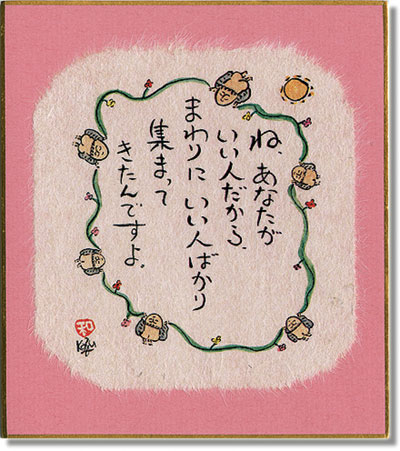 ね、あなたが
いい人だから、
まわりに いい人ばかり
集まって
きたんですよ。
和